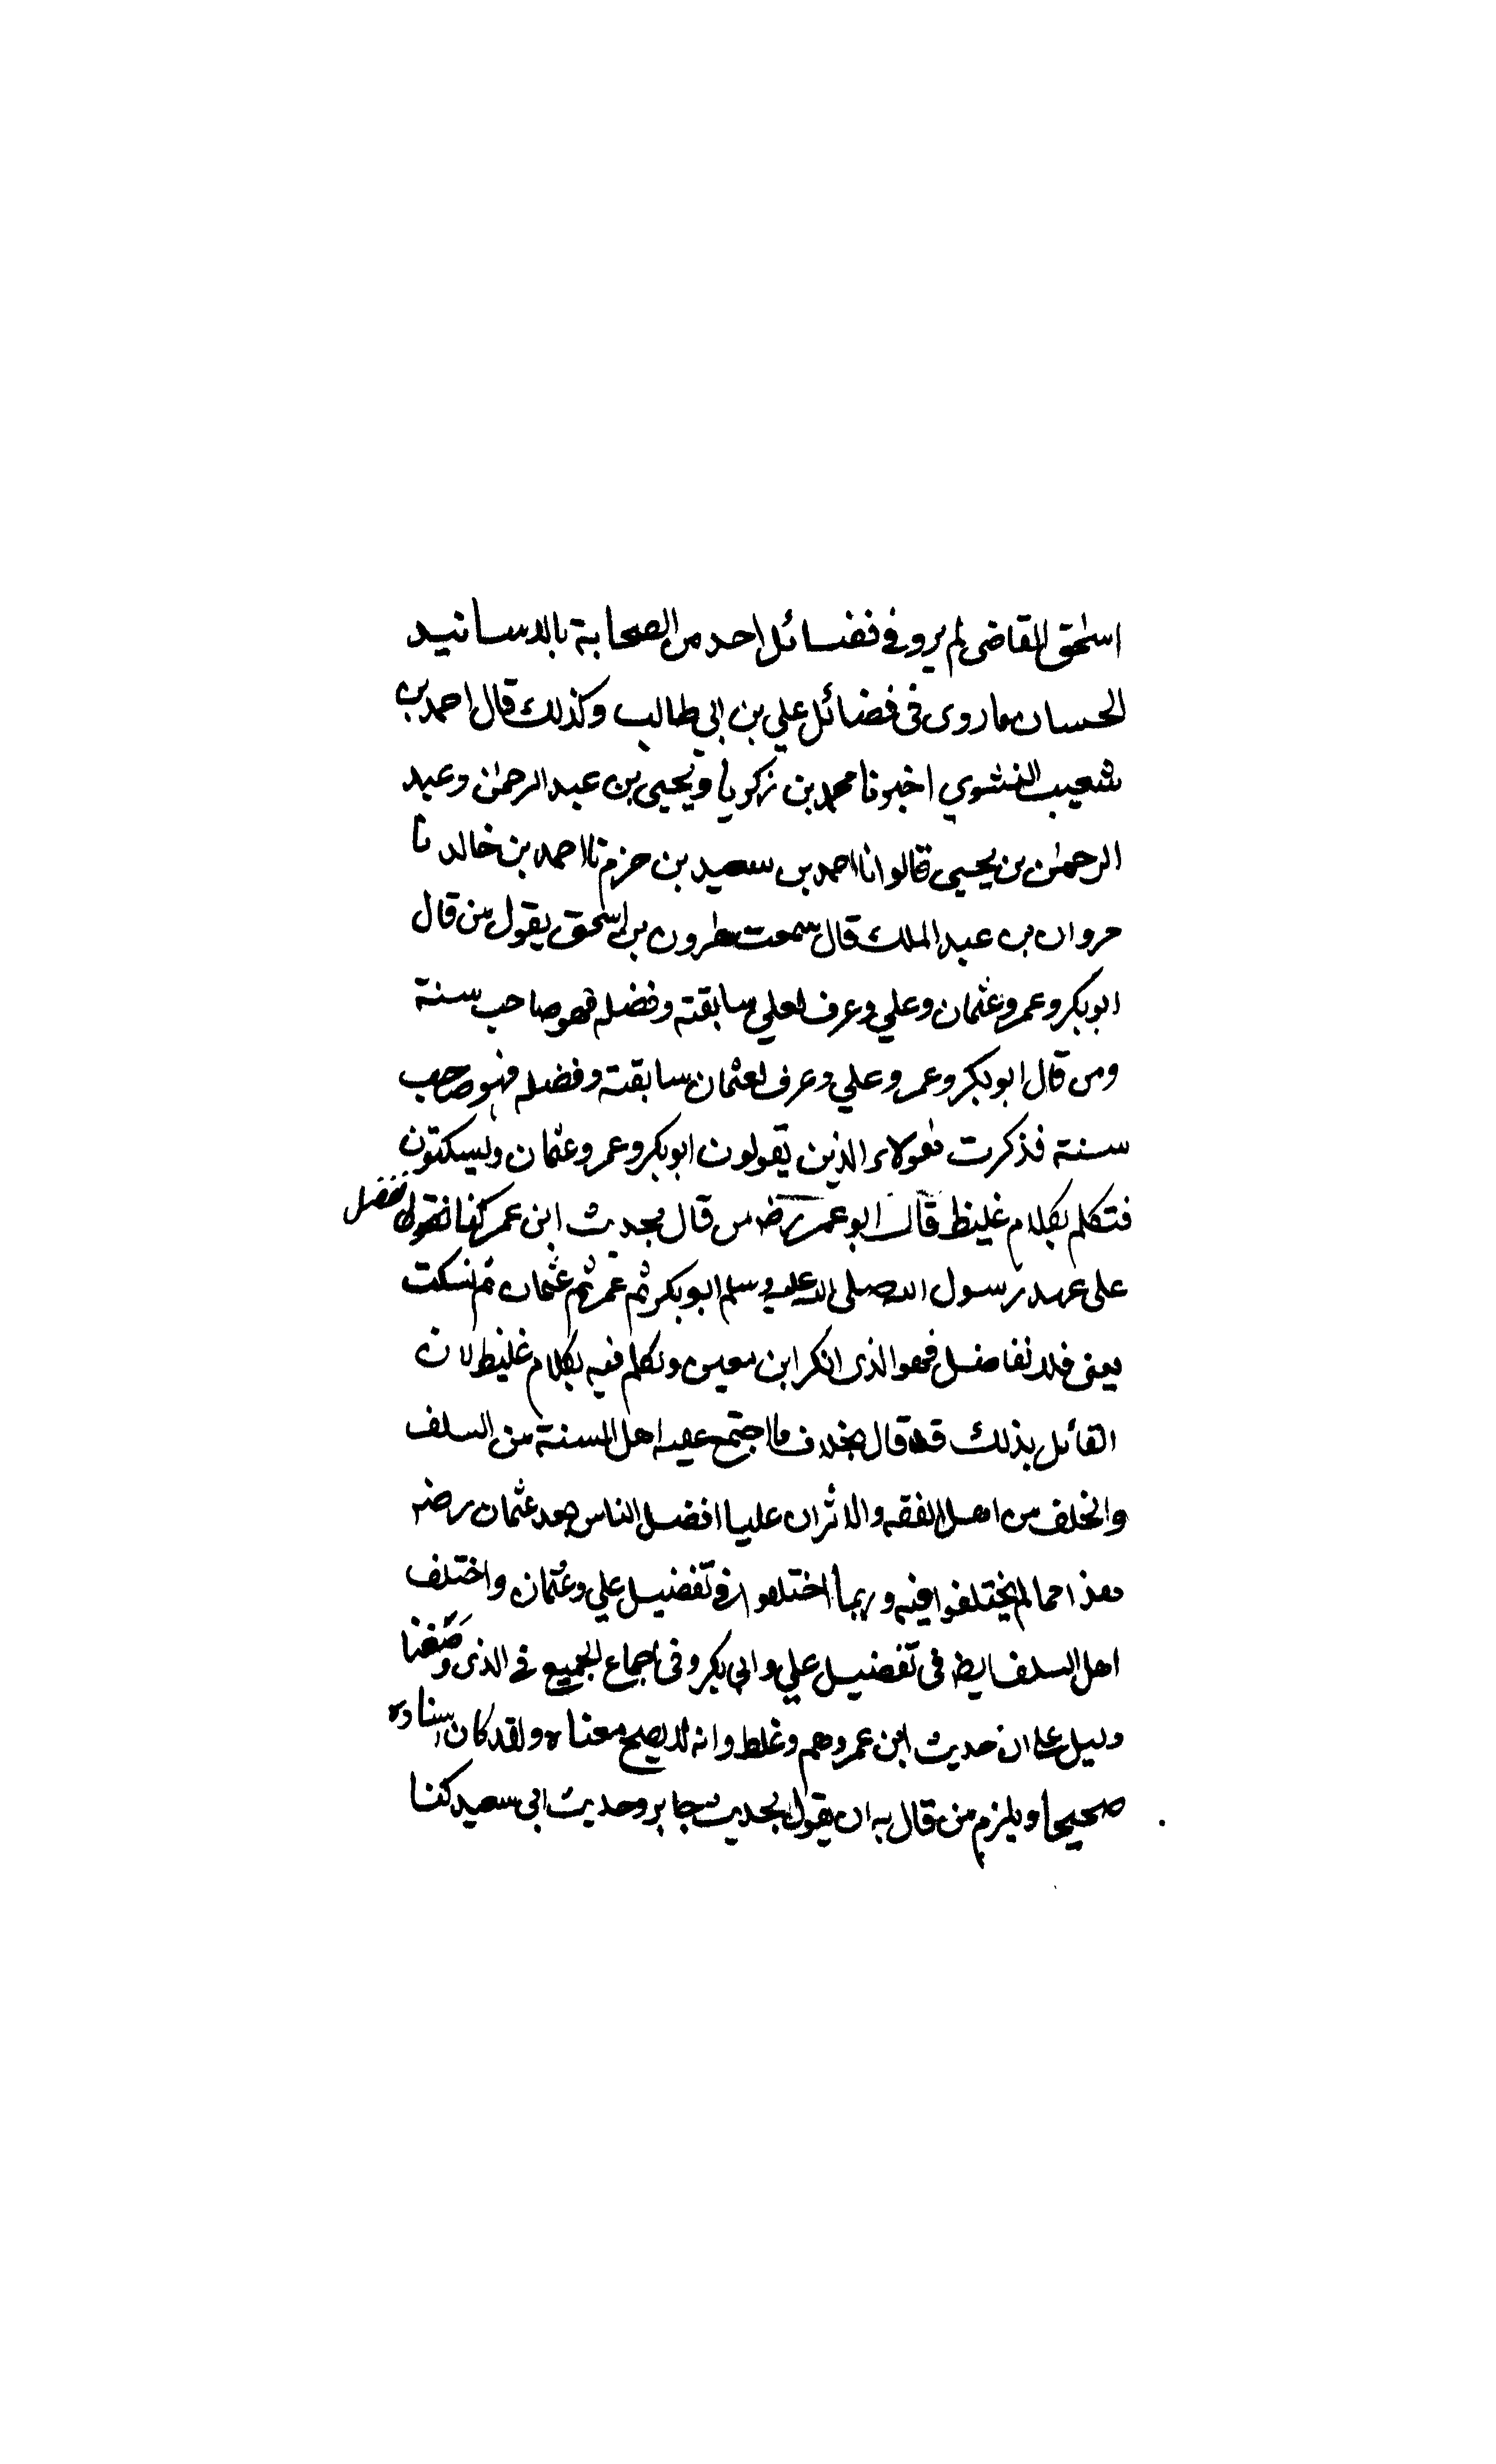 اسحٰق القاضى لم يرو فى فضائل احد من الصحابة بالاسانيد
الحسان ما روى فى فضائل علي بن ابي طالب وكذلك قال احمد بن
شعيب النشوي اخبرنا محمد بن زكريا ويحيى بن عبد الرحمٰن وعبد
الرحمٰن بن يحيى قالوا انا احمد بن سعيد بن حزم نا احمد بن خالد نا
مروان بن عبد الملك قال سمعت هٰرون بن اسحٰق يقول من قال
ابو بكر وعمر وعثمان وعلي وعرف لعلي سابقته وفضله فهو صاحب سنة
ومن قال ابو بكر وعمر وعلي وعرف لعثمان سابقته وفضله فهو صاحب
سنة فذكرت هٰؤلاء الذين يقولون ابو بكر وعمر وعثمان ويسكتون
فتكلم بكلام غليظ قال ابو عمر رضه من قال بحديث ابن عمر كنا نقول نفضل
على عهد رسول الله صلى الله عليه وسلم ابو بكر ثم عمر ثم عثمان ثم نسكت
يعنى فلا نفاضل فهو الذى انكر ابن معين وتكلم فيه بكلام غليظ لان
القائل بذلك قد قال بخلاف ما اجتمع عليه اهل السنة من السلف
والخلف من اهل الفقه والاثر ان عليا افضل الناس بعد عثمان رضه
هذا مما لم يختلفوا فيه وربما اختلفوا فى تفضيل علي وعثمان واختلف
اهل السلف ايضا فى تفضيل علي وابي بكر وفى اجماع الجميع فى الذى وَصَفنا
دليل على ان حديث ابن عمر وهم وغلط وانه لا يصح معناه ولقد كان اسناده
صحيحا ويلزم من قال به ان يقول بحديث جابر وحديث ابى سعيد كنا